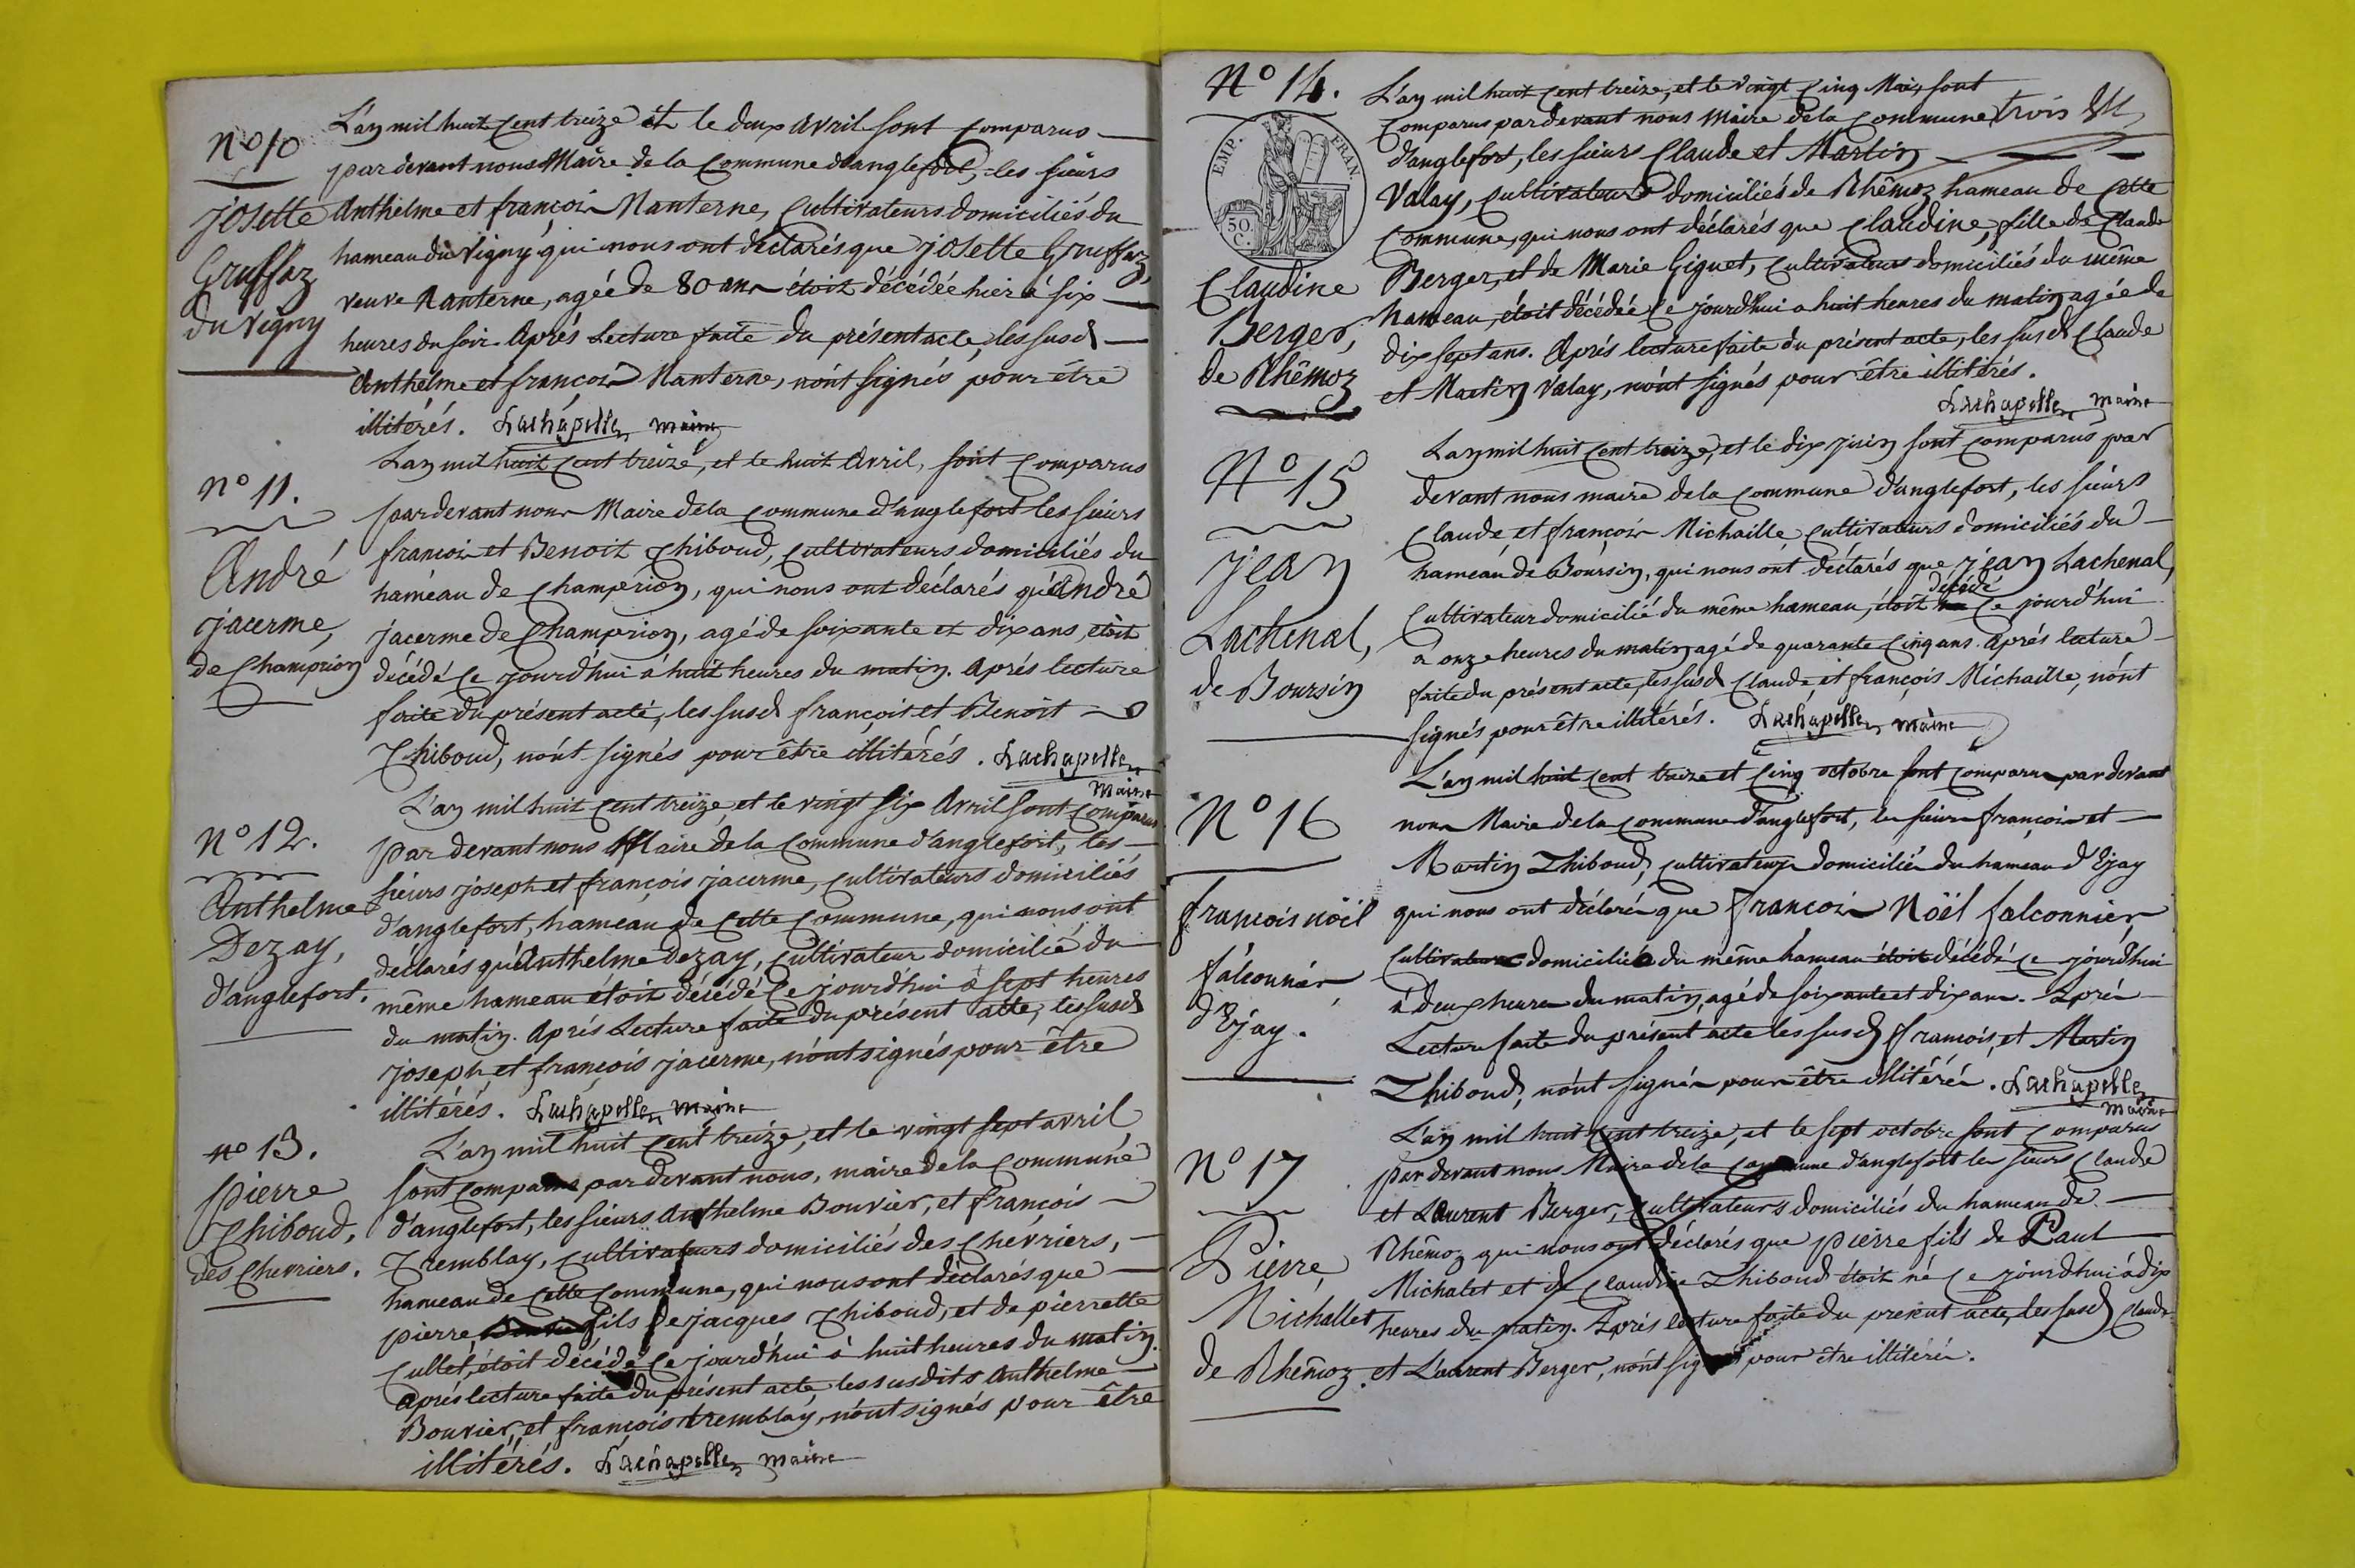 N° 10
Josette
Gruffaz
du Vigny
L'an mil huit cent treize et le deux Avril sont comparus
par devant nous Maire de la Commune d'anglefort, les sieurs
Anthelme et françois Nanterne, Cultivateurs domiciliés du
hameau du Vigny qui nous ont déclarés que josette Gruffaz,
veuve Nanterne, agée de 80 ans étoit décédée hier à six
heures du soir. Aprés Lecture faite du présent acte, les susd
Anthelme et françois Nanterne, n'ont signés pour être
illitérés. Lachapelle maire
N° 11.
André
jacerme,
de Champrion
L'an mil huit cent treize, et le huit Avril, sont comparus
pardevant nous Maire dela commune d'anglefort les sieurs
francois et Benoit Thiboud, Cultivateurs domiciliés du
haméau de Champérion, qui nous ont déclarés qu'André
jacerme de Champrion, agé de soixante et dix ans étoit
décédé ce jourd'hui à huit heures du matin. Aprés lecture
faite du présent acte, les susd françois et Benoit
Thiboud, n'ont signés pour être illitérés. Lachapelle
Maire
N° 12.
Anthelme
Dezay,
d'anglefort.
L'an mil huit cent treize, et le vingt six Avril sont comparus
par devant nous Maire de la Commune d'anglefort, les
sieurs joseph et françois jacerme, cultivateurs domiciliés
d'anglefort, hameau de cette commune, qui nous ont
déclarés qu'Anthelme Dezay, cultivateur domicilié du
même hameau étoit décédé ce jourd'hui à sept heures
du matin. Aprés Lecture faite du présent acte, les susd
joseph et françois jacerme, n'ont signés pour être
illitérés. Lachapelle maire
n° 13.
Pierre
Thiboud,
des Chevriers.
L'an mil huit cent treize, et le vingt sept avril
sont comparus par devant nous, maire dela Commune
d'anglefort, les sieurs Anthelme Bouvier, et françois
Tremblay, cultivateurs domiciliés des Chevriers,
hameau de cette commune, qui nous ont déclarés que
pierre fils de jacques Thiboud, et de pierrette
Cullet, étoit décédé ce jourd'hui à huit heures du matin.
Aprés lecture faite du présent acte, les susdits Anthelme
Bouvier, et françois tremblay, n'ont signés pour être
illitérés. Lachapelle maire
N° 14.
EMP. FRAN.
50 C.
Claudine
Berger,
de Rhêmoz
L'an mil huit cent treize, et le vingt cinq Mai sont
comparus pardevant nous Maire dela Commune trois
d'anglefort, les sieurs Claude et Martin
Valay, cultivateurs domiciliés de Rhêmoz hameau de cette
Commune, qui nous ont déclarés que Claudine, fille de Claude
Berger, et de Marie Giguet, cultivateurs domiciliés du même
hameau, étoit décédée ce jourd'hui a huit heures du matin agée de
dix sept ans. Aprés lecture faite du présent acte, les susd Claude
et Martin Valay, n'ont signés pour être illitérés.
Lachapelle maire
N° 15
Jean
Lachenal,
de Boursin
L'an mil huit cent treize, et le dix juin sont comparus par
devant nous maire dela commune d'anglefort, les sieurs
Claude et françois Michaille, cultivateurs domiciliés du
hameau de Boursin, qui nous ont déclarés que jean Lachenal,
décédé
Cultivateur domicilié du même hameau, étoit ce jourd'hui
à onze heures du matin agé de quarante cinq ans. Aprés lecture
faite du présent acte, les susd Claude, et françois Michaille, n'ont
signés pour être illitérés. Lachapelle maire
N° 16
francois noël
falconnier
d'Ejay.
L'an mil huit cent treize et cinq octobre sont comparus par devant
nous Maire dela commune d'anglefort, les sieurs françois et
Martin Thiboud, cultivateurs domiciliés du hameau d'Ejay
qui nous ont déclarés que françois Noël falconnier,
Cultivateur domicilié du même hameau étoit décédé ce jourd'hui
à deux heures du matin, agé de soixante et dix ans. Aprés
Lecture faite du présent acte les susd francois, et Martin
Thiboud, n'ont signés pour être illitérés. Lachapelle
maire
N° 17
Pierre
Michallet
de Rhêmoz.
L'an mil huit cent treize, et le sept octobre sont comparus
par devant nous Maire dela commune d'anglefort les sieurs Claude
et Laurent Berger, cultivateurs domiciliés du hameau de
Rhêmoz qui nous ont déclarés que pierre fils de Paul
Michalet et de Claudine Thiboud étoit né ce jourd'hui à dix
heures du matin. Aprés lecture faite du present acte, les susd Claude
et Laurent Berger, n'ont signés pour être illitérés.